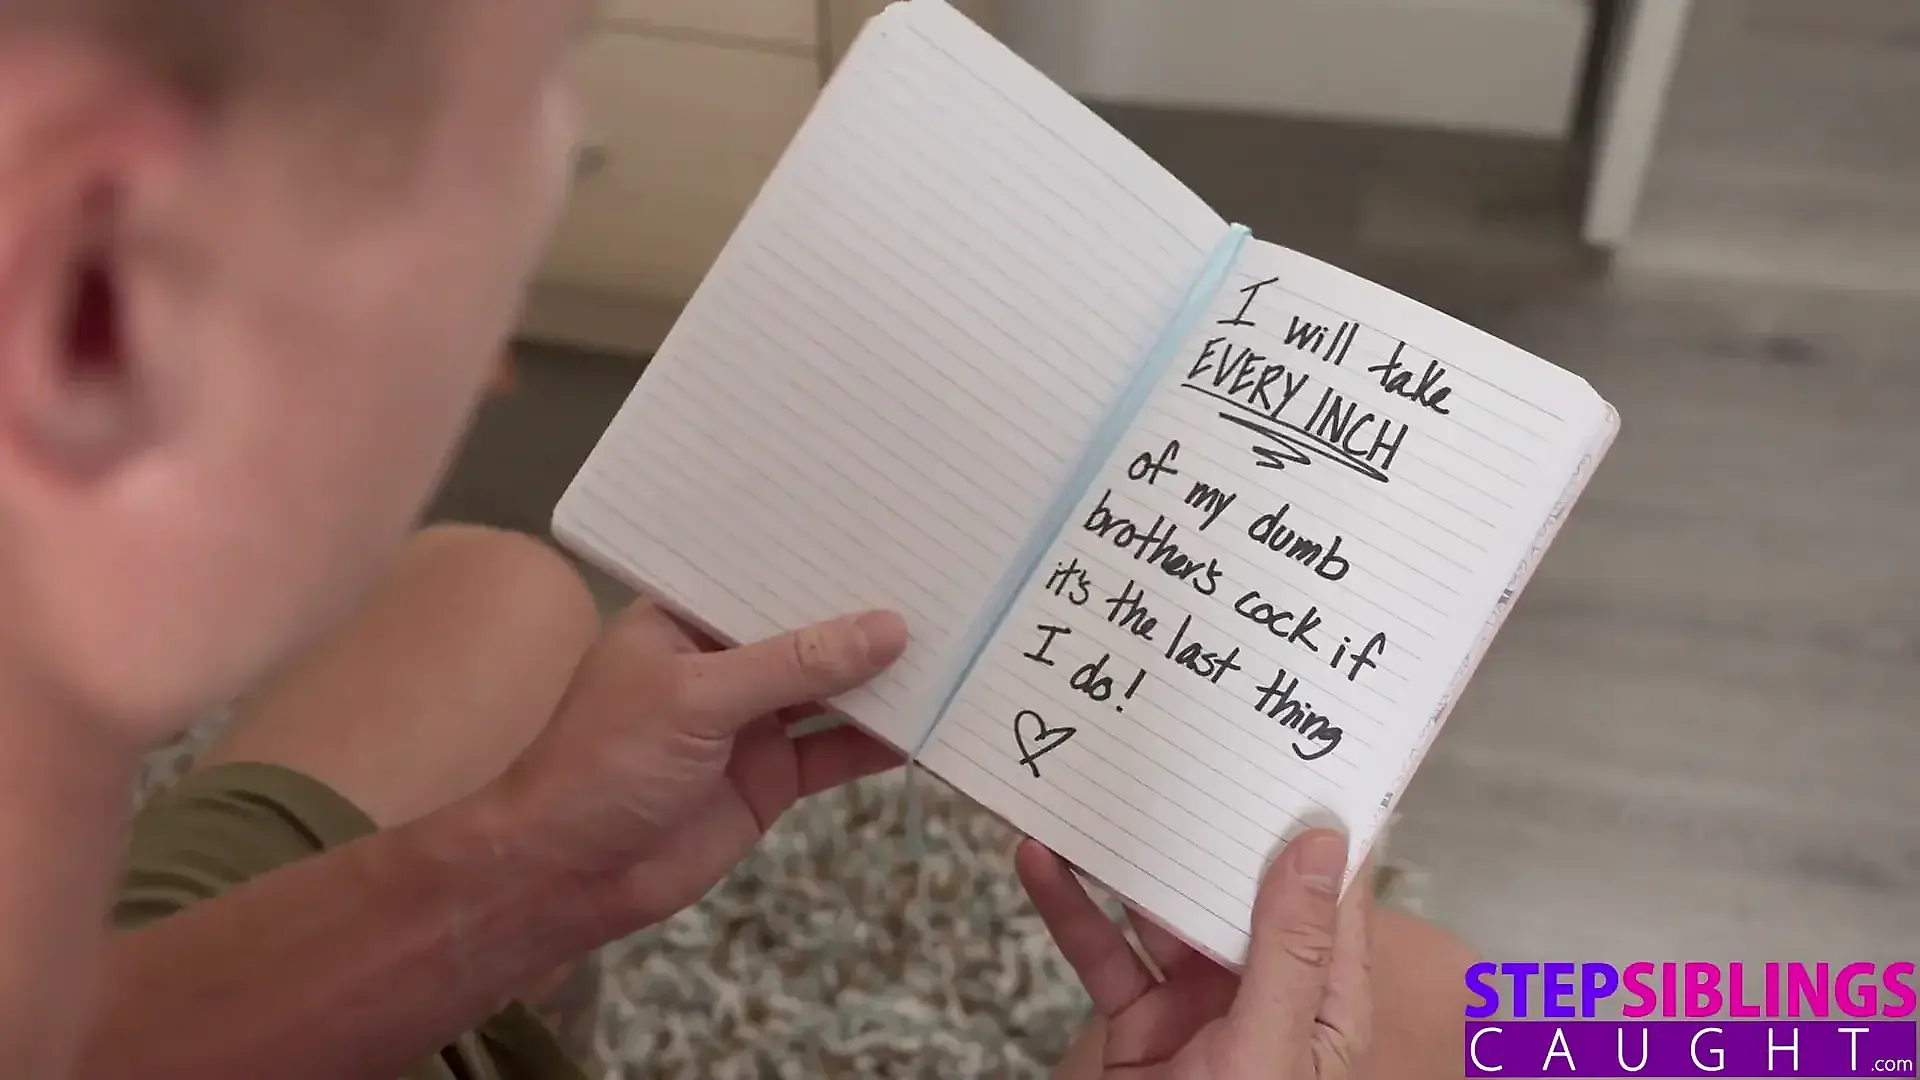 I will take
EVERY INCH
of my dumb
brother's cock if
it's the last thing
I do!
STEPSIBLINGS
CAUGHT.com